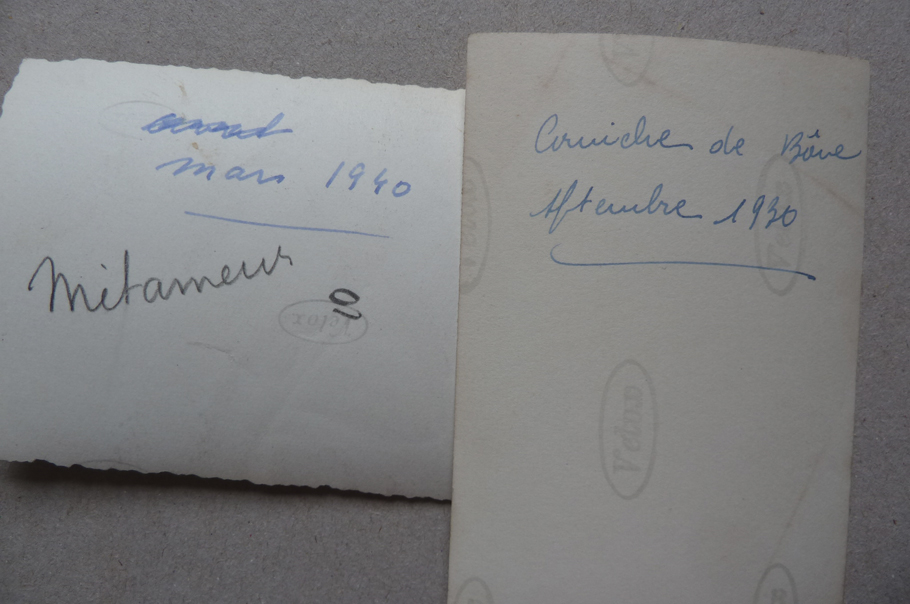 mars 1940
Métameur
Velox
Corniche de Bône
septembre 1930
Velox
Velox